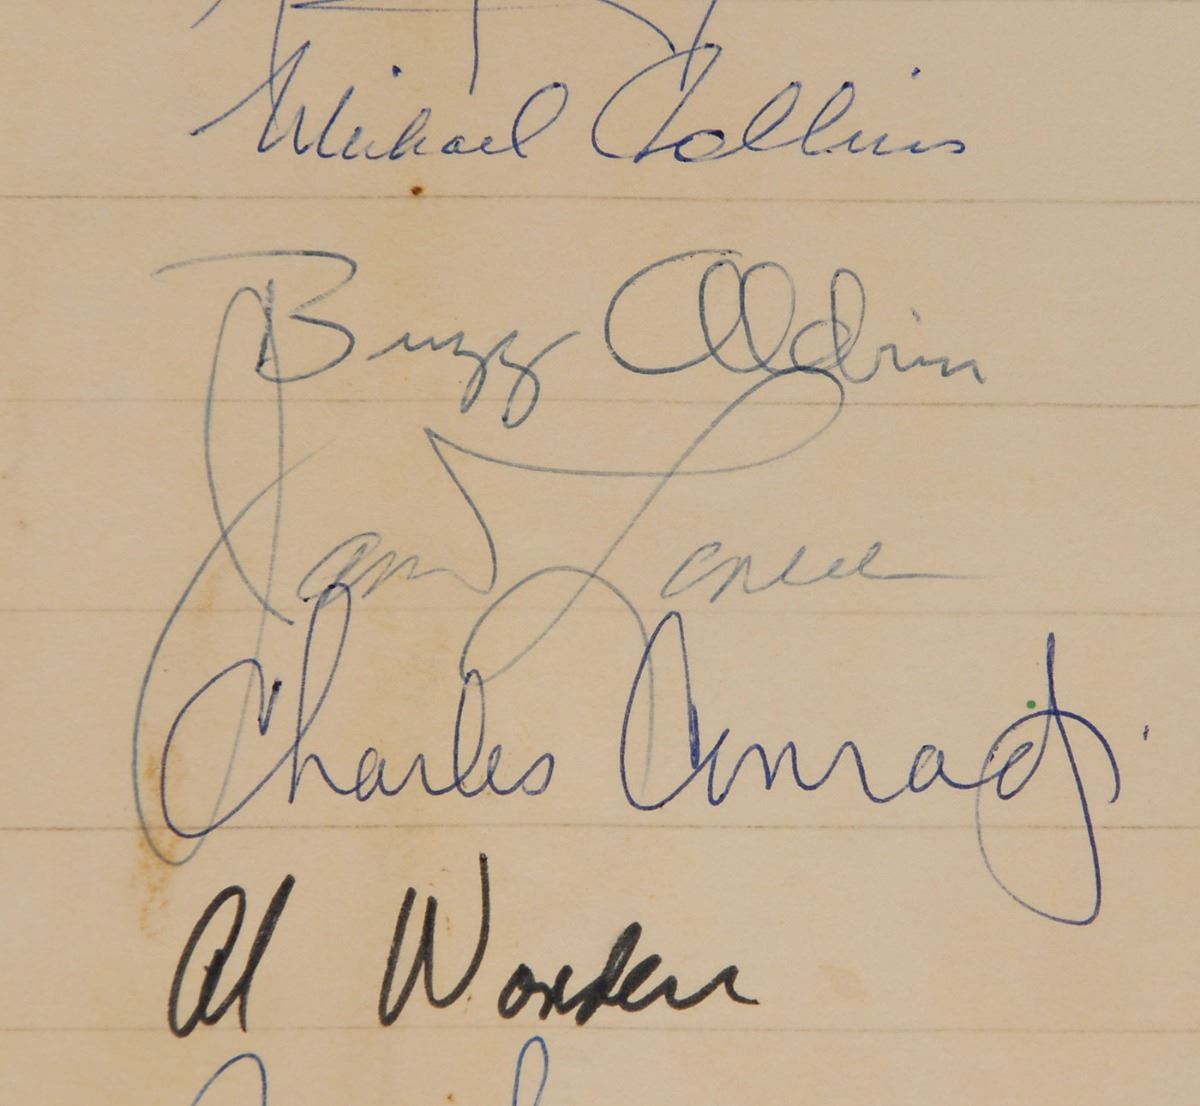 Michael Collins
Buzz Aldrin
James Lovell
Charles Conrad Jr.
Al Worden